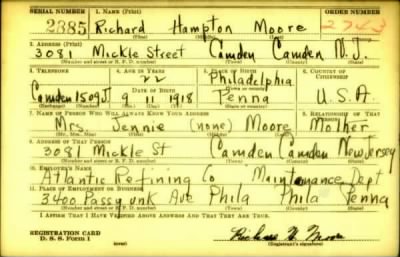 SERIAL NUMBER 1. NAME (Print) ORDER NUMBER
2385 Richard Hampton Moore 2723
(First) (Middle) (Last)
2. ADDRESS (Print)
3081 Mickle Street Camden Camden N.J.
(Number and street or R. F. D. number) (Town) (County) (State)
3. TELEPHONE 4. AGE IN YEARS 5. PLACE OF BIRTH 6. COUNTRY OF CITIZENSHIP
22 Philadelphia
DATE OF BIRTH (Town or county)
Camden 1509J 9 11 1918 Penna U.S.A.
(Exchange) (Number) (Mo.) (Day) (Yr.) (State or country)
7. NAME OF PERSON WHO WILL ALWAYS KNOW YOUR ADDRESS 8. RELATIONSHIP OF THAT PERSON
Mrs. Jennie (none) Moore Mother
(Mr., Mrs., Miss) (First) (Middle) (Last)
9. ADDRESS OF THAT PERSON
3081 Mickle St Camden Camden New Jersey
(Number and street or R. F. D. number) (Town) (County) (State)
10. EMPLOYER'S NAME
Atlantic Refining Co Maintenance Dept
11. PLACE OF EMPLOYMENT OR BUSINESS
3400 Passyunk Ave Phila Phila Penna
(Number and street or R. F. D. number) (Town) (County) (State)
I AFFIRM THAT I HAVE VERIFIED ABOVE ANSWERS AND THAT THEY ARE TRUE.
REGISTRATION CARD
D. S. S. Form 1 (over) Richard H. Moore
(Registrant's signature)